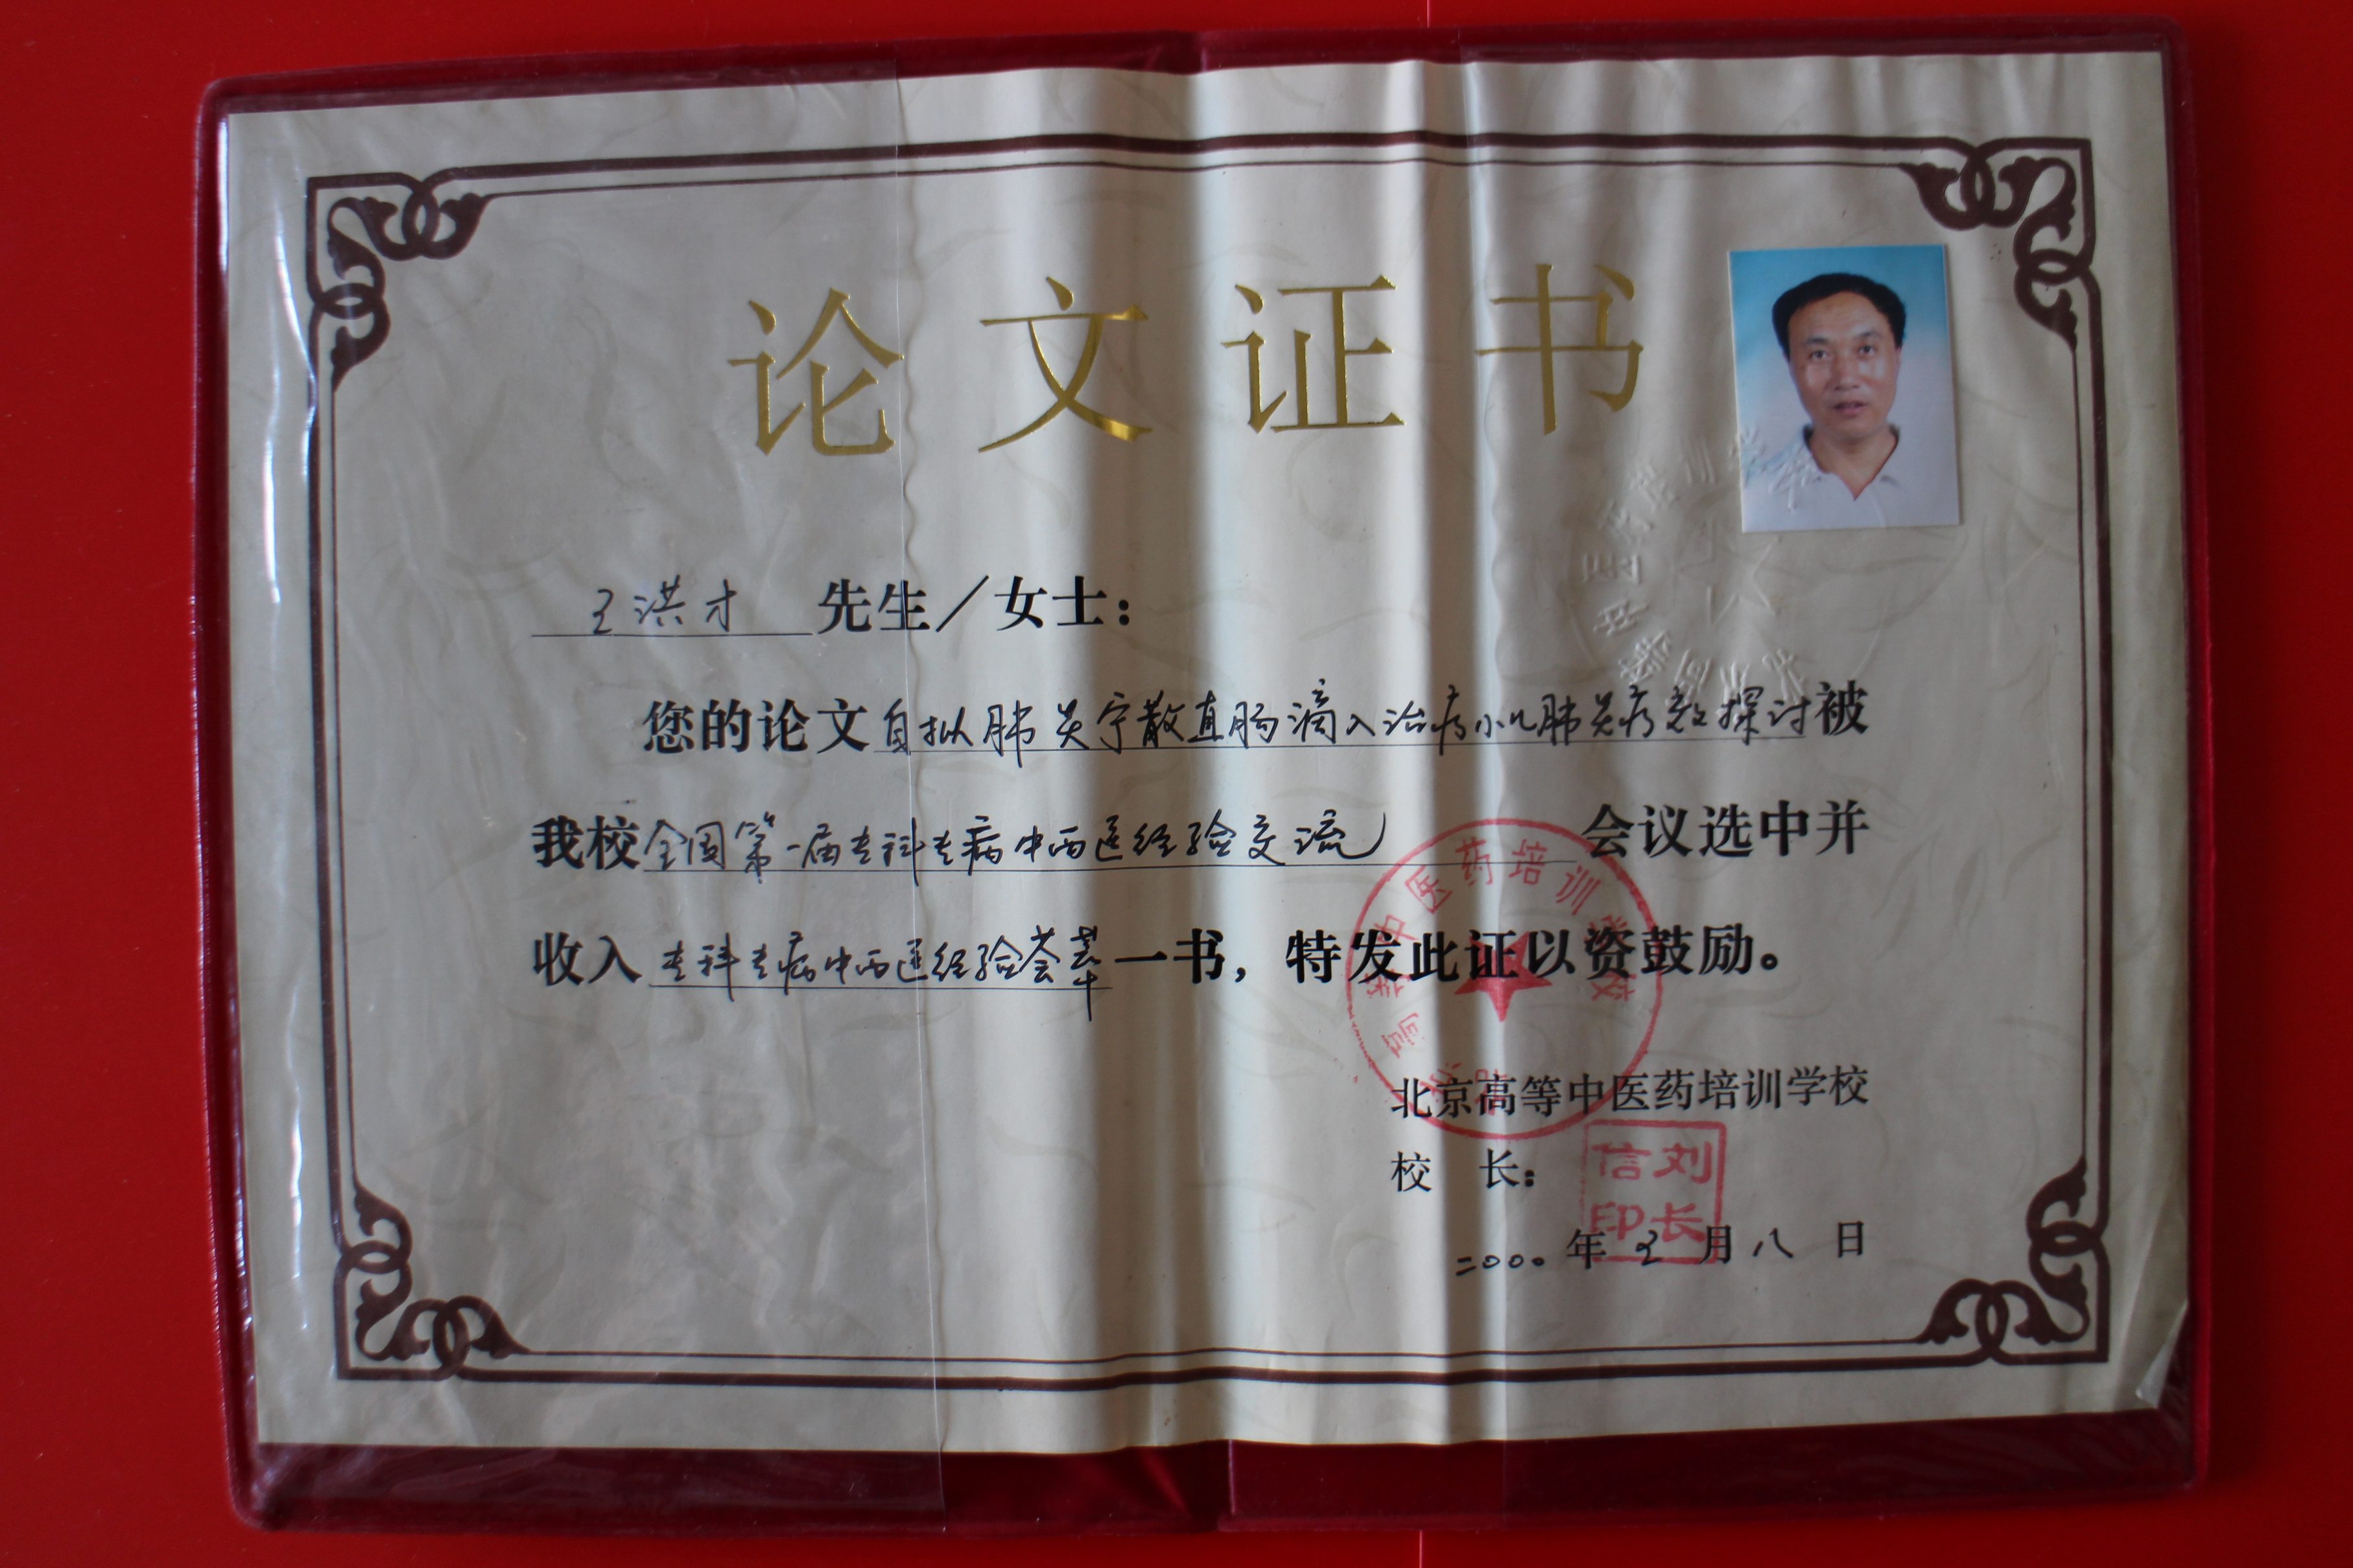 论文证书
王洪才 先生／女士：
您的论文自拟肺炎宁散直肠滴入治疗小儿肺炎疗效探讨被
我校全国第一届专科专病中西医经验交流 会议选中并
收入 专科专病中西医经验荟萃一书，特发此证以资鼓励。
北京高等中医药培训学校
校 长：
刘长信印
二〇〇〇年 月八日